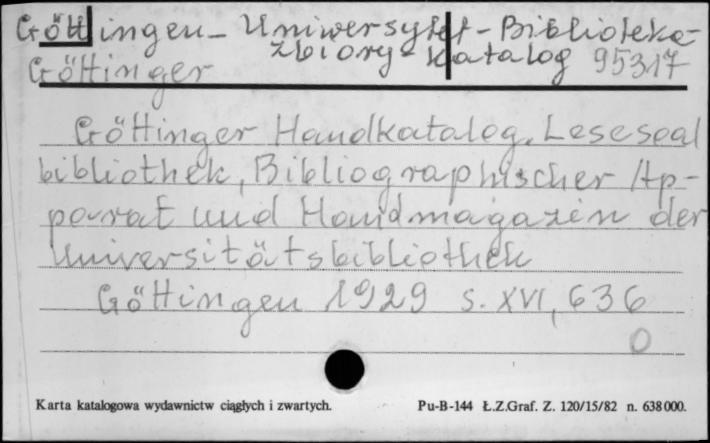 Göttingen - Uniwersytet - Biblioteka -
zbiory - katalog 95317
Göttinger
Göttinger Handkatalog. Lesesaal
bibliothek, Bibliographischer Ap-
parat und Handmagazin der
Universitätsbibliothek
Göttingen 1929 s. XVI, 636
0
Karta katalogowa wydawnictw ciągłych i zwartych. Pu-B-144 Ł.Z.Graf. Z. 120/15/82 n. 638000.